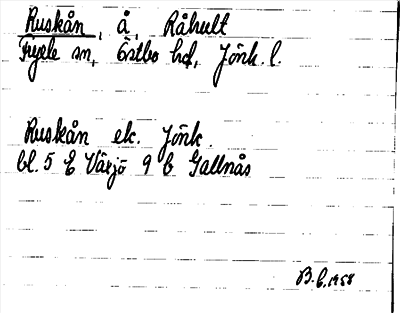 Ruskån, å, Råhult
Fryele sn, Östbo hd, Jönk. l.
Ruskån ek. Jönk.
bl. 5 E Växjö 9 b Gallnås
B.E. 1958